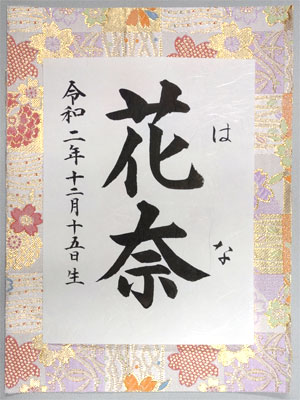 はな
花奈
令和二年十二月十五日生